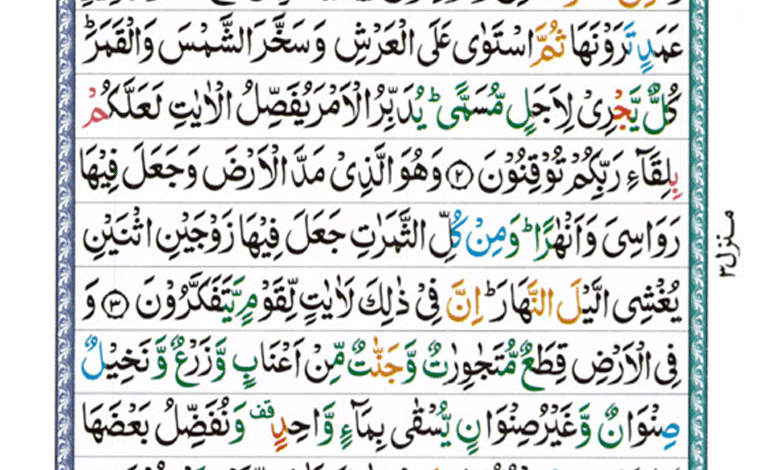 عَمَدٍ تَرَوْنَهَا ثُمَّ اسْتَوٰى عَلَى الْعَرْشِ وَسَخَّرَ الشَّمْسَ وَالْقَمَرَ ؕ
كُلٌّ يَّجْرِىْ لِاَجَلٍ مُّسَمًّى ؕ يُدَبِّرُ الْاَمْرَ يُفَصِّلُ الْاٰيٰتِ لَعَلَّكُمْ
بِلِقَآءِ رَبِّكُمْ تُوْقِنُوْنَ ﴿۲﴾ وَهُوَ الَّذِىْ مَدَّ الْاَرْضَ وَجَعَلَ فِيْهَا
رَوَاسِىَ وَاَنْهٰرًا ؕ وَمِنْ كُلِّ الثَّمَرٰتِ جَعَلَ فِيْهَا زَوْجَيْنِ اثْنَيْنِ
يُغْشِى الَّيْلَ النَّهَارَ ؕ اِنَّ فِىْ ذٰلِكَ لَاٰيٰتٍ لِّقَوْمٍ يَّتَفَكَّرُوْنَ ﴿۳﴾ وَ
فِى الْاَرْضِ قِطَعٌ مُّتَجٰوِرٰتٌ وَّجَنّٰتٌ مِّنْ اَعْنَابٍ وَّزَرْعٌ وَّنَخِيْلٌ
صِنْوَانٌ وَّغَيْرُ صِنْوَانٍ يُّسْقٰى بِمَآءٍ وَّاحِدٍ قف وَنُفَضِّلُ بَعْضَهَا
منزل۳